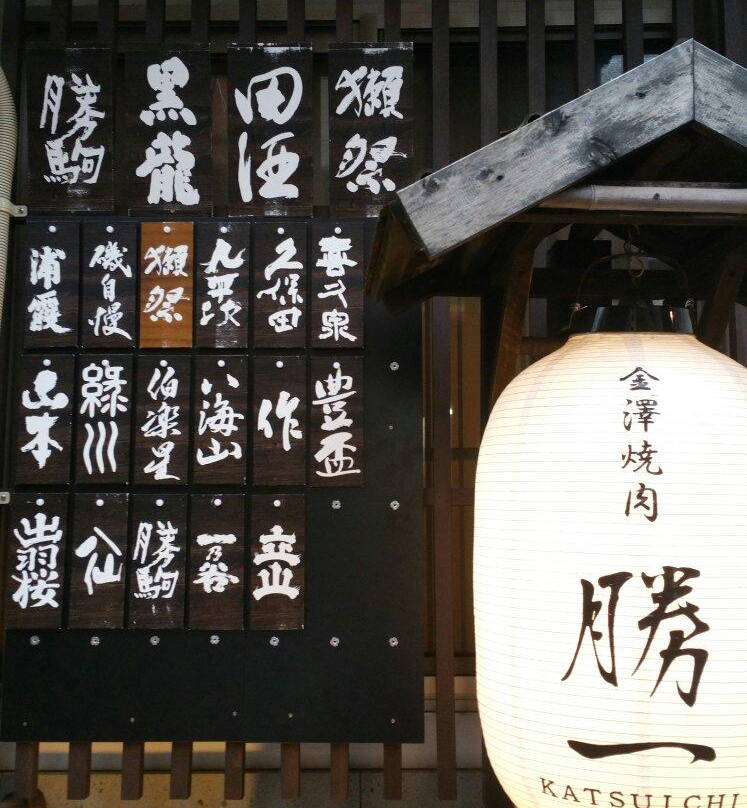 獺祭
田酒
黒龍
勝駒
喜久泉
久保田
九平次
獺祭
磯自慢
浦霞
豊盃
作
八海山
伯楽星
緑川
山本
立山
一乃谷
勝駒
八仙
出羽桜
金澤焼肉
勝一
KATSUICHI